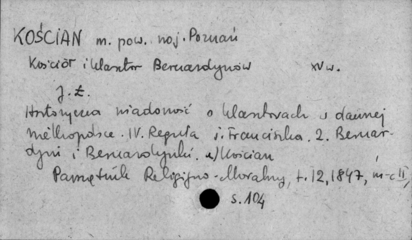 KOŚCIAN m. pow. woj. Poznań
Kościół i klasztor Bernardynów XV w.
J. Ł.
Historyczna wiadomość o klasztorach w dawnej
Wielkopolsce. IV. Reguła ś. Franciszka. 2. Bernar-
dyni i Bernardynki. a) Kościan
Pamiętnik Religijno-Moralny, t. 12, 1847,
s. 104